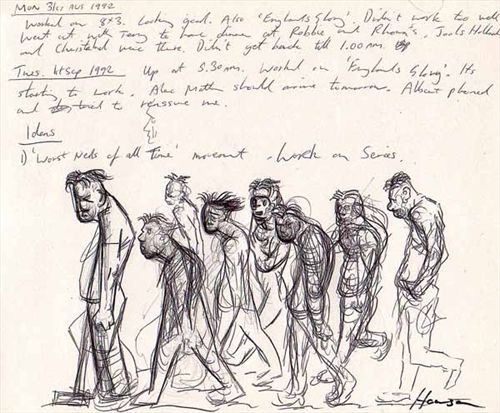 MON 31ST AUG 1992
Worked on 8x3. Looking good. Also 'Englands Glory'. Didn't work too well
Went out with Terry to have dinner at Robbie and Rhona's. Jools Holland
and Christabel were there. Didn't get back till 1.00AM.
Tues. 1st Sep 1992 Up at 5.30AM. Worked on 'Englands Glory'. Its
starting to work. Alan Moth should arrive tomorrow. Albert phoned
and tried to reassure me.
Ideas
1) 'Worst Neds of all Time' movement. Work on Series.